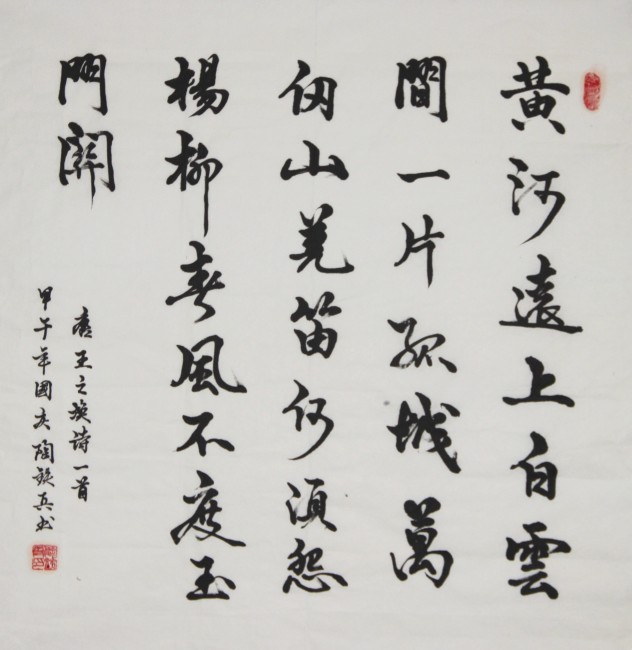 黃河遠上白雲
間一片孤城萬
仞山羌笛何須怨
楊柳春風不度玉
門關
唐王之渙詩一首
甲午年國慶陶銳兵书